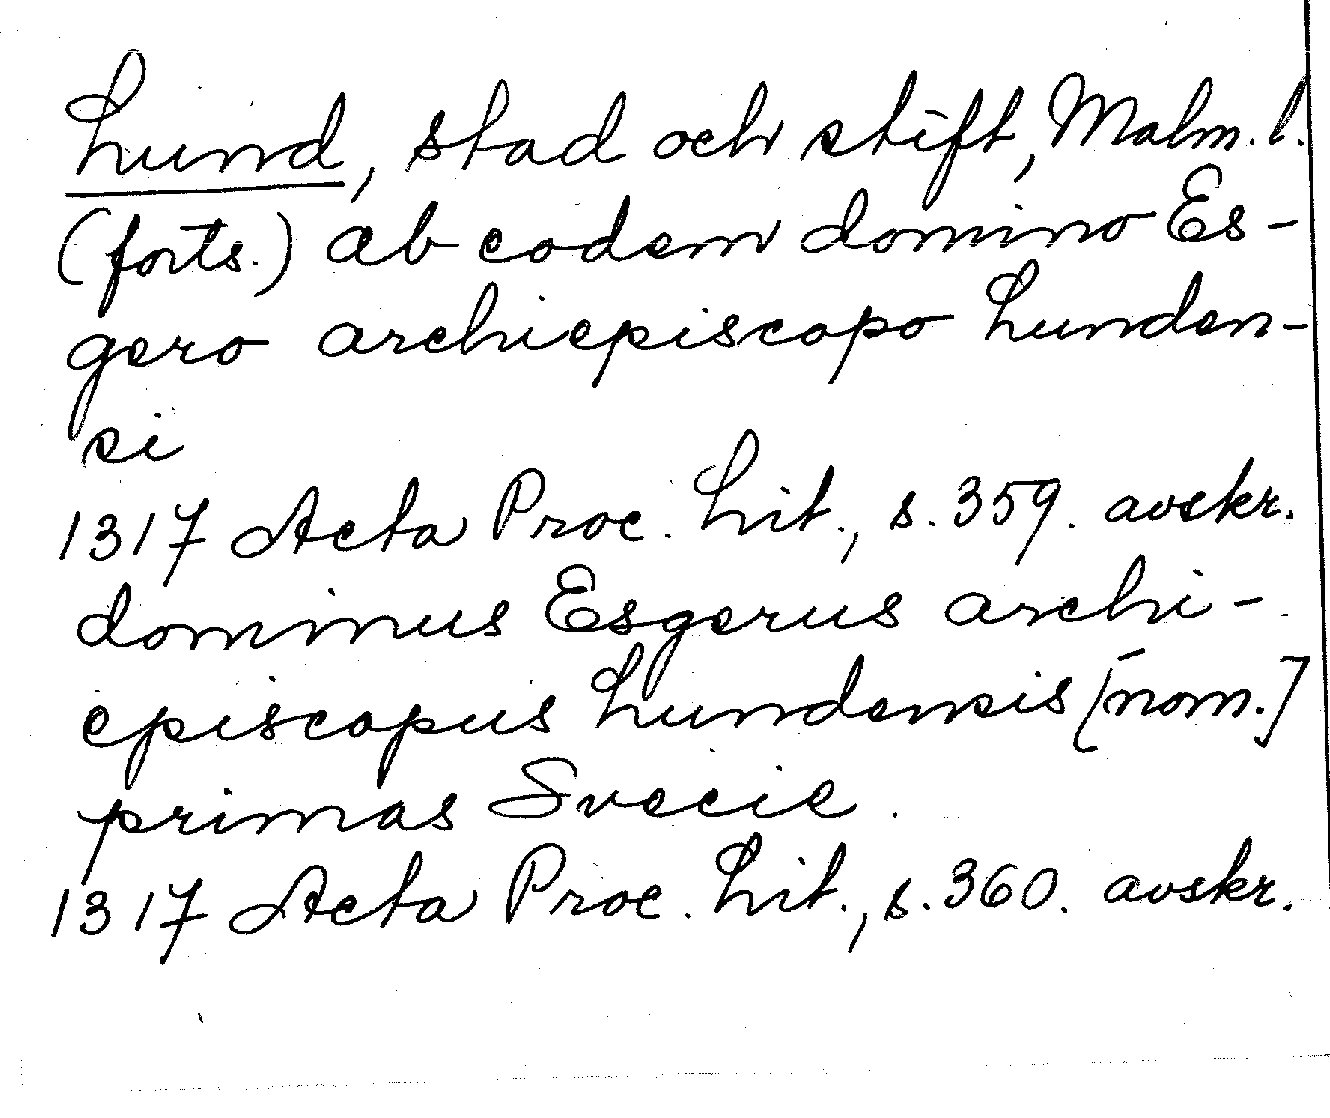 Lund, stad och stift, Malm. l.
(forts.) ab eodem domino Es-
gero archiepiscopo Lunden-
si
1317 Acta Proc. Lit., s. 359. avskr.
dominus Esgerus archi-
episcopus Lundensis [nom.]
primas Svecie.
1317 Acta Proc. Lit., s. 360. avskr.